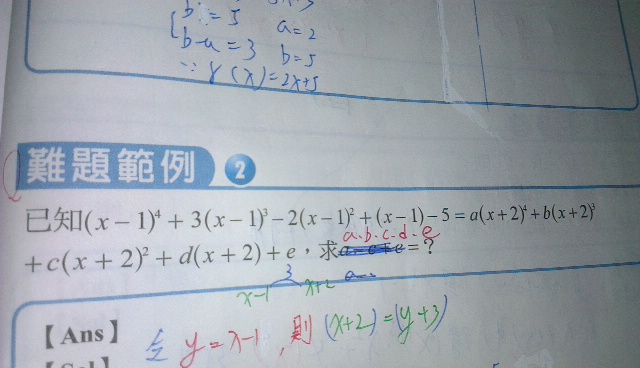 b = 5
a=2
b-a=3
b=5
∵ r(x)=2x+5
難題範例 2
已知(x-1)⁴+3(x-1)³-2(x-1)²+(x-1)-5=a(x+2)⁴+b(x+2)³
a.b.c.d.e
+c(x+2)²+d(x+2)+e,求a-c+e=?
3
a=
x-1 x+2
【Ans】 令 y=x-1,則(x+2)=(y+3)